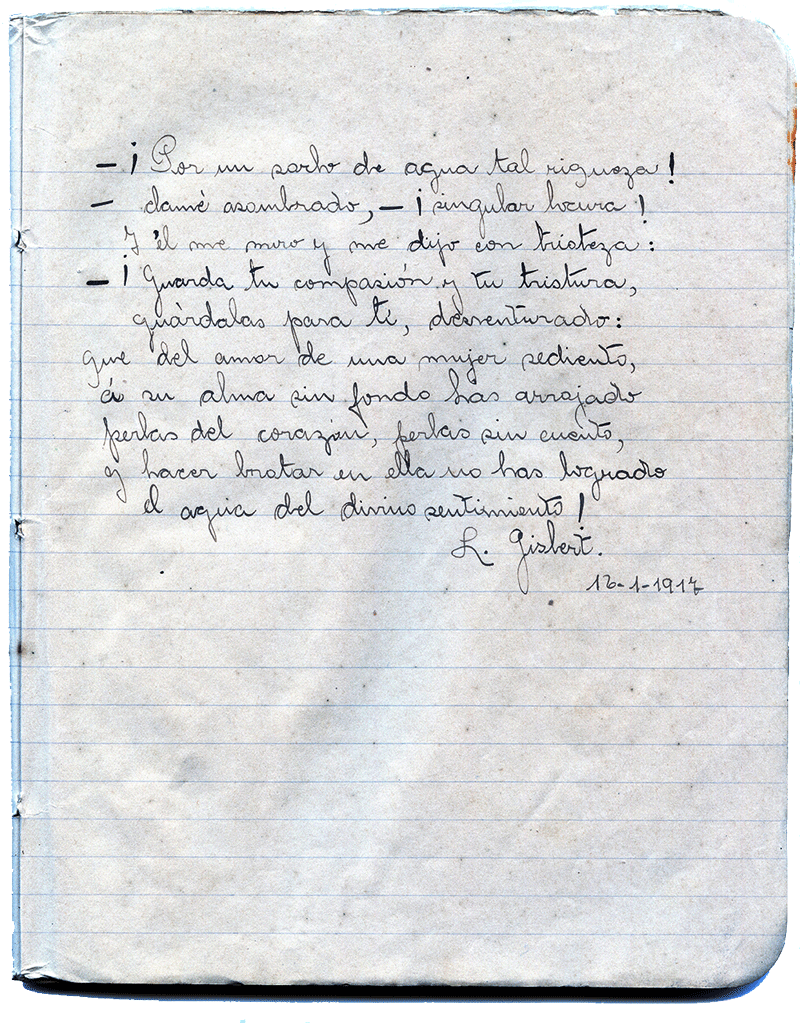 — ¡ Por un sorbo de agua tal riqueza !
— clamé asombrado, — ¡ singular locura !
Y él me miro y me dijo con tristeza :
— ¡ Guarda tu compasión y tu tristura,
guárdalas para tí, desventurado :
que del amor de una mujer sediento,
á su alma sin fondo has arrojado
perlas del corazón, perlas sin cuento,
y hacer brotar en ella no has logrado
el agua del divino sentimiento !
L. Gisbert.
-1-1917